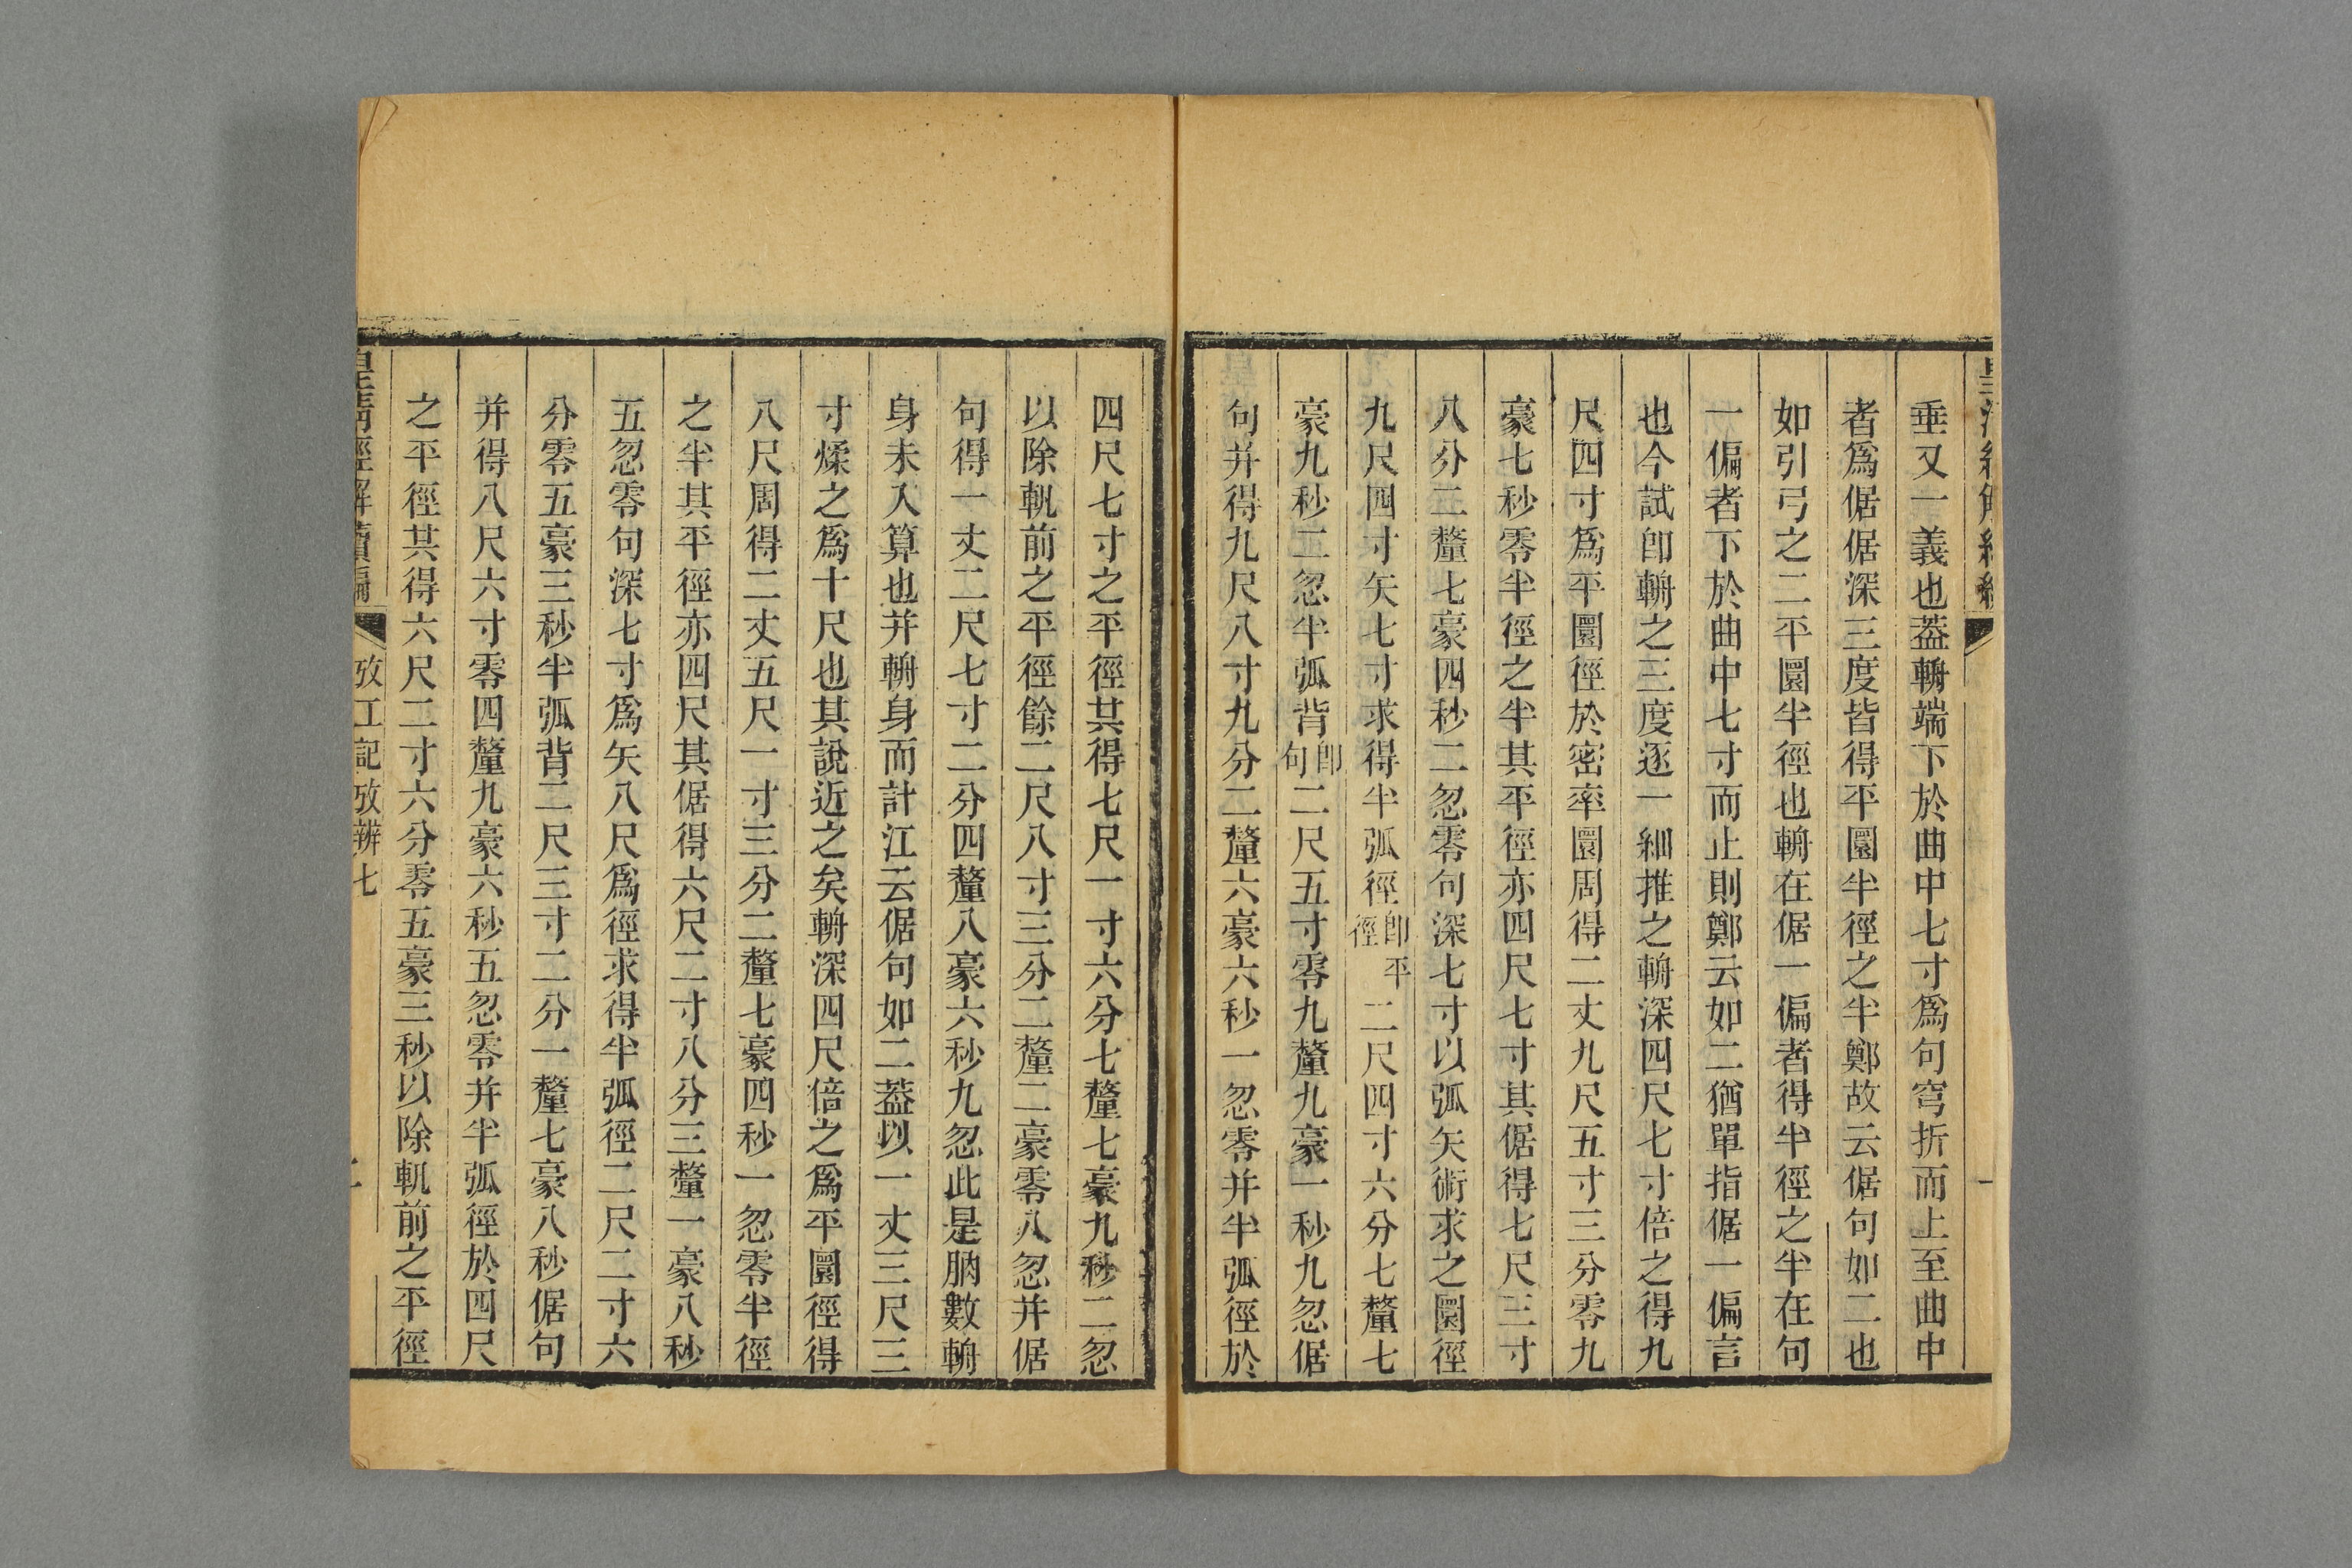 垂又一義也葢輈端下於曲中七寸爲句穹折而上至曲中
者爲倨倨深三度皆得平圜半徑之半鄭故云倨句如二也
如引弓之二平圜半徑也輈在倨一偏者得半徑之半在句
一偏者下於曲中七寸而止則鄭云如二猶單指倨一偏言
也今試卽輈之三度逐一細推之輈深四尺七寸倍之得九
尺四寸爲平圜徑於密率圜周得二丈九尺五寸三分零九
豪七秒零半徑之半其平徑亦四尺七寸其倨得七尺三寸
八分二釐七豪四秒二忽零句深七寸以弧矢術求之圜徑
九尺四寸矢七寸求得半弧徑卽平徑二尺四寸六分七釐七
豪九秒二忽半弧背卽句二尺五寸零九釐九豪一秒九忽倨
句并得九尺八寸九分二釐六豪六秒一忽零并半弧徑於
四尺七寸之平徑其得七尺一寸六分七釐七豪九秒二忽
以除軓前之平徑餘二尺八寸三分二釐二豪零八忽并倨
句得一丈二尺七寸二分四釐八豪六秒九忽此是胹數輈
身未入算也并輈身而計江云倨句如二葢以一丈三尺三
寸煣之爲十尺也其說近之矣輈深四尺倍之爲平圜徑得
八尺周得二丈五尺一寸三分二釐七豪四秒一忽零半徑
之半其平徑亦四尺其倨得六尺二寸八分三釐一豪八秒
五忽零句深七寸爲矢八尺爲徑求得半弧徑二尺二寸六
分零五豪三秒半弧背二尺三寸二分一釐七豪八秒倨句
并得八尺六寸零四釐九豪六秒五忽零并半弧徑於四尺
之平徑其得六尺二寸六分零五豪三秒以除軓前之平徑
皇淸經解續編
攷工記攷辨七